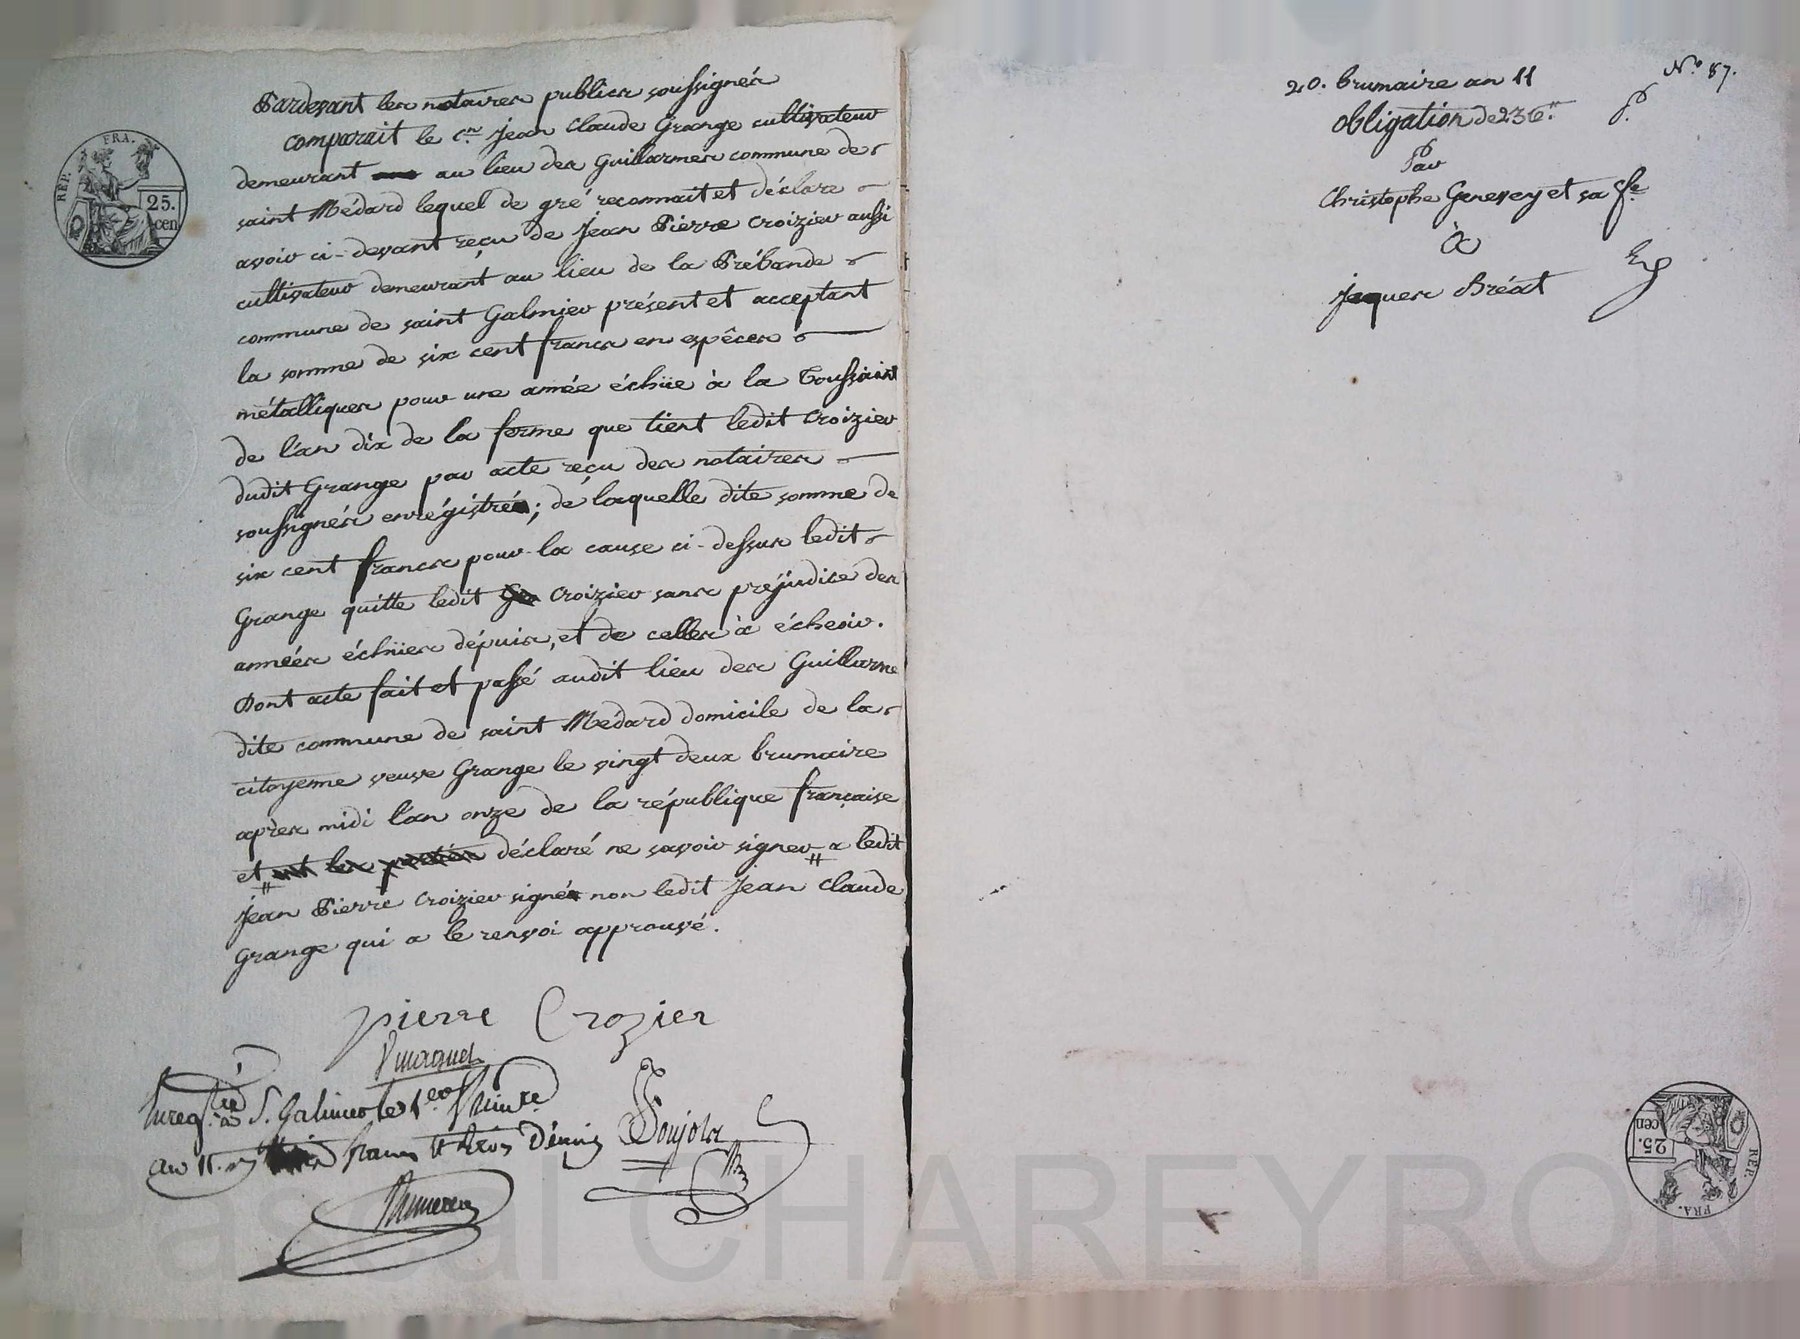 Pardevant les notaires publics soussignés
comparait le c.en Jean Claude Grange cultivateur
demeurant au lieu des Guillarmes commune de
saint Médard lequel de gré reconnait et déclare
avoir ci-devant reçu de Jean Pierre Croizier aussi
cultivateur demeurant au lieu de la Prébande
commune de saint Galmier présent et acceptant
la somme de six cent francs en espêces
métalliques pour une année échüe à la Toussaint
de l'an dix de la ferme que tient ledit Croizier
dudit Grange par acte reçu des notaires
soussignés enrégistré ; de laquelle dite somme de
six cent francs pour la cause ci-dessus ledit
Grange quitte ledit Croizier sans préjudice des
années échües dépuis, et de celles à écheoir.
Dont acte fait et passé audit lieu des Guillarme
dite commune de saint Médard domicile de la
citoyenne veuve Grange le vingt deux brumaire
après midi l'an onze de la république française
et ont les parties déclaré ne savoir signer a ledit
Jean Pierre Croizier signé non ledit Jean Claude
Grange qui a le renvoi approuvé.
pierre Crozier
Enreg.tré à S. Galmier le 1.er frimre
an 11. francs
Poujola
REP. FRA.
25.
cen
20. brumaire an 11
N.o 87.
obligation de 236.tt
Par
Christophe Genevey et sa fe
à
Jaques Bréat
REP. FRA.
25.
cen
Pascal CHAREYRON